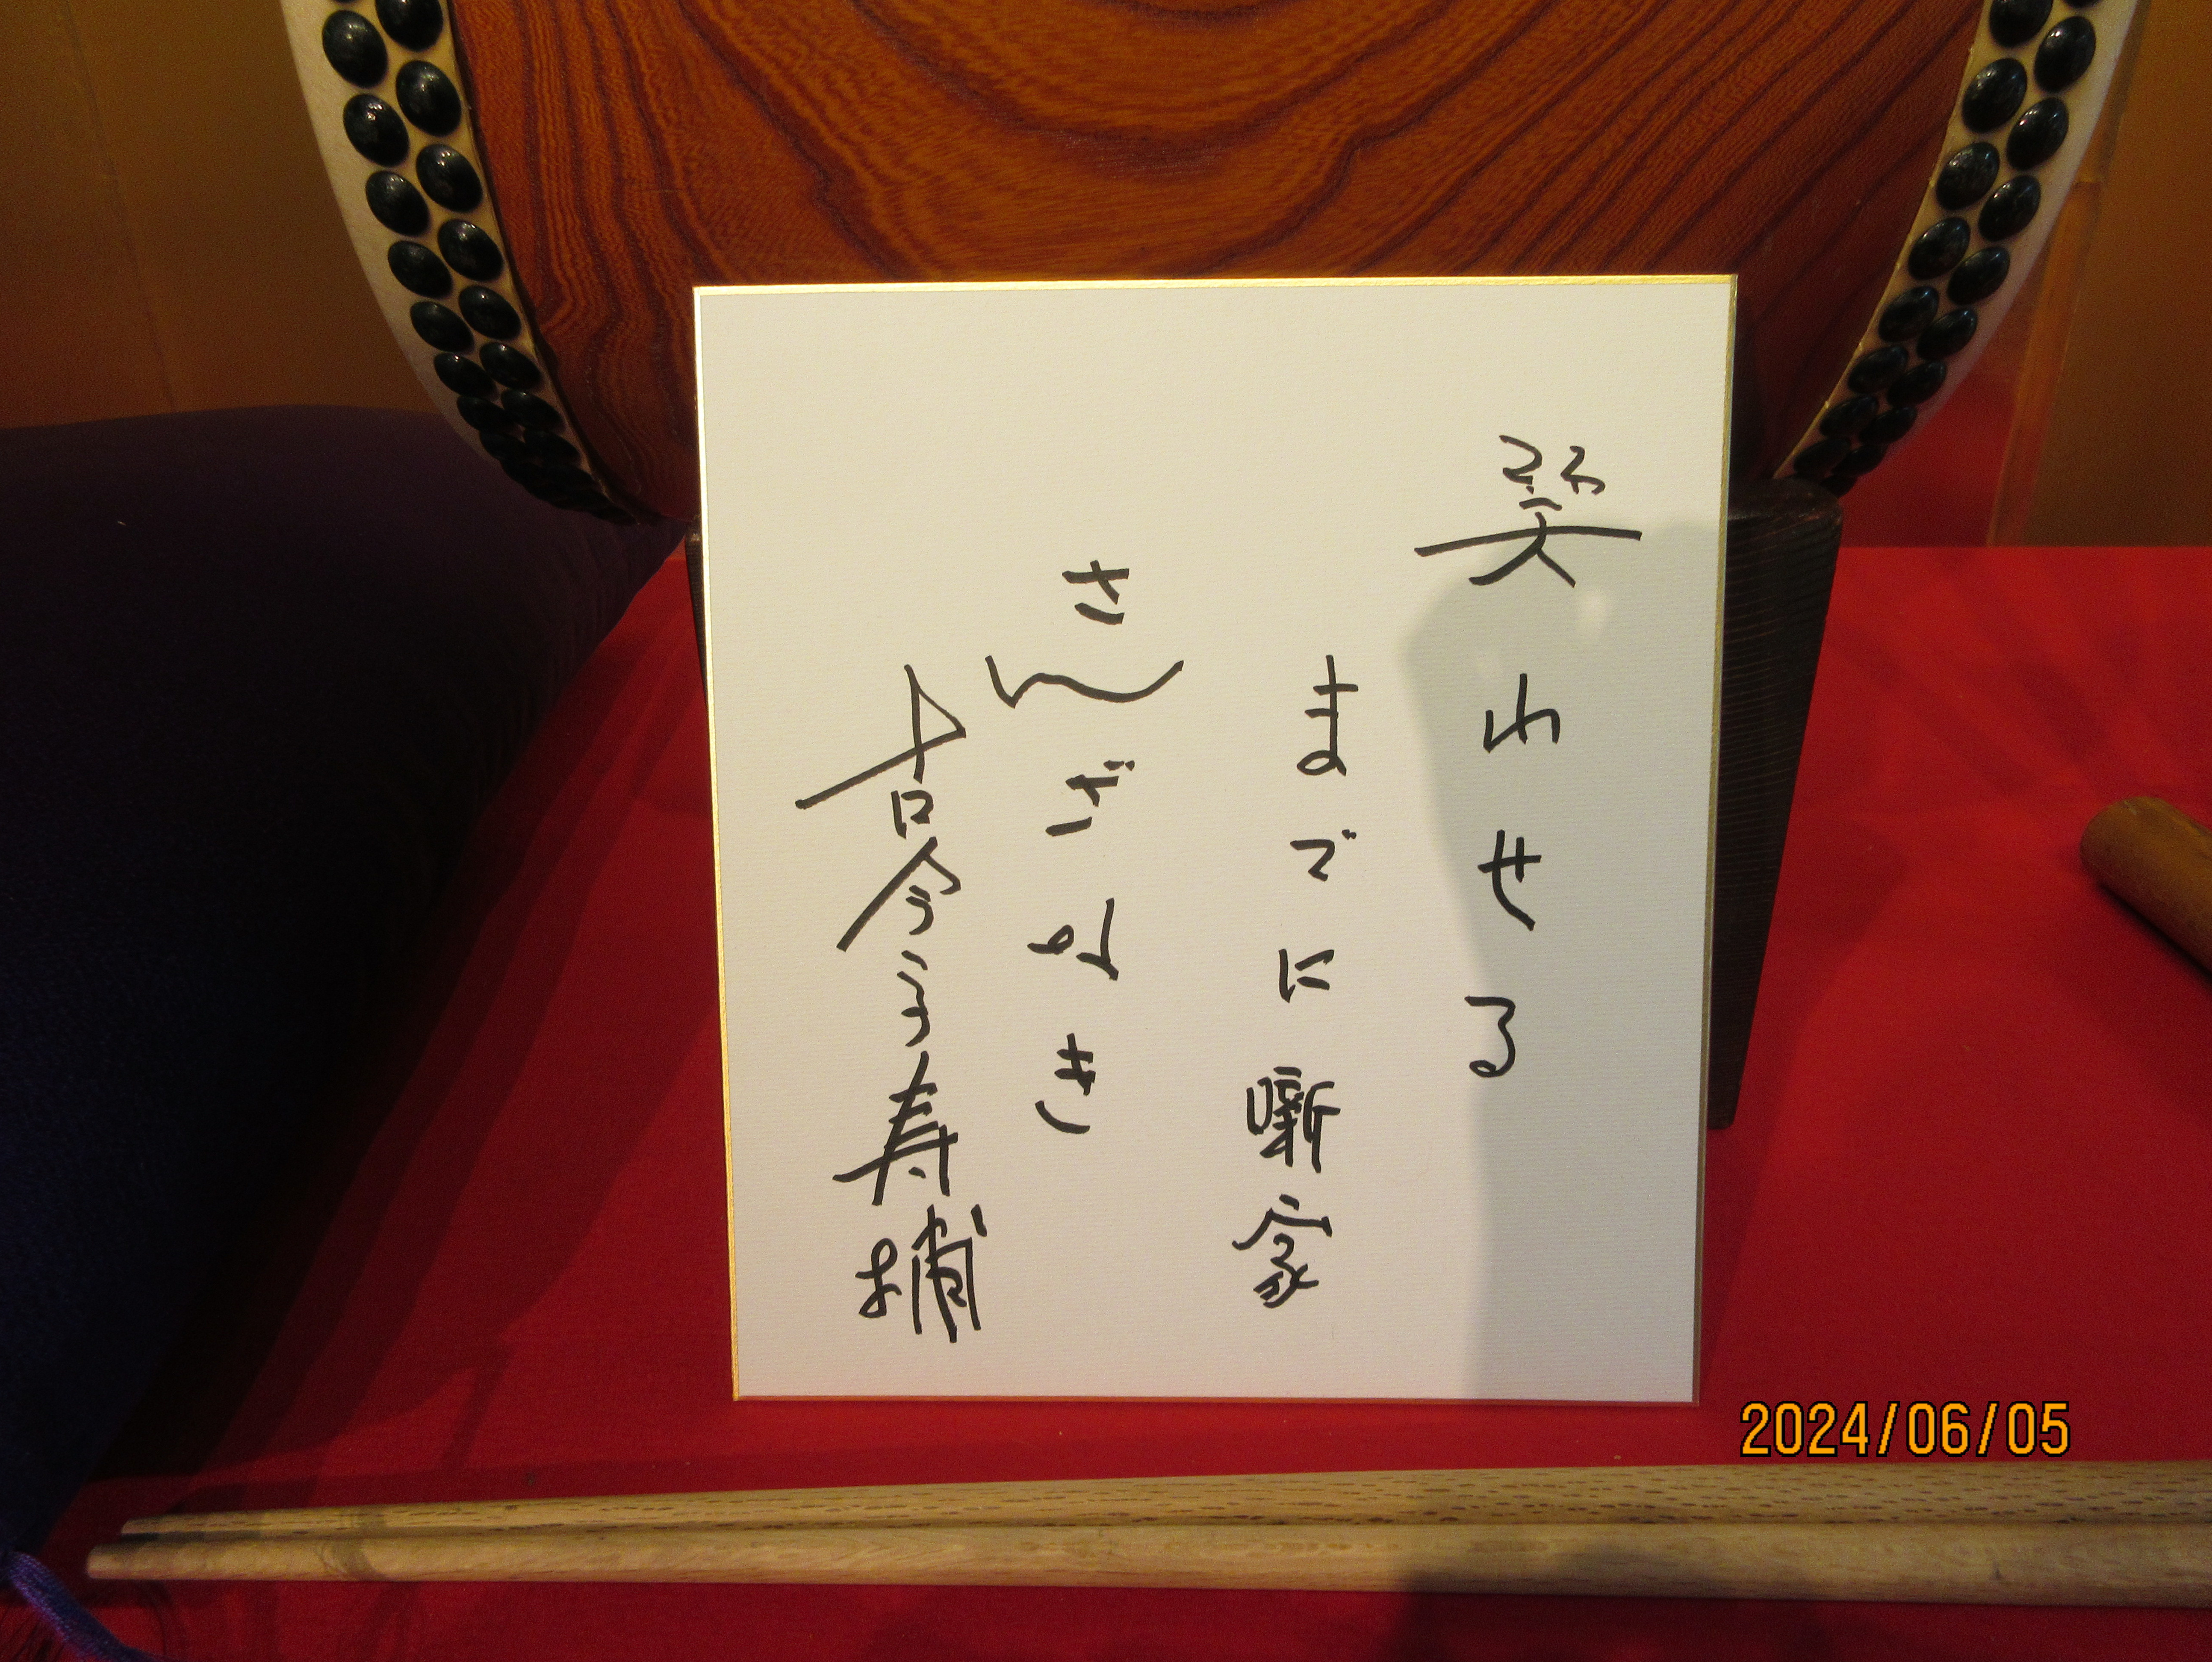 笑わせる
までに噺家
さんざなき
古今亭寿輔
2024/06/05